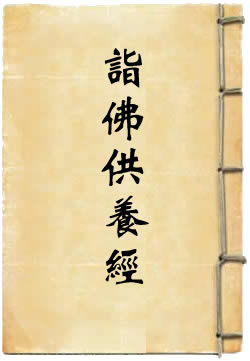 詣佛供養經